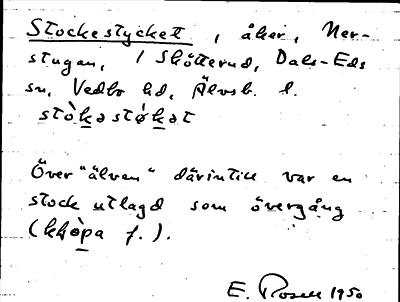 Stockestycket, åker, Ner-
stugan, 1 Skötterud, Dals-Eds
sn, Vedbo hd, Älvsb. l.
stòkəstỳkət
Över "älven" därintill var en
stock utlagd som övergång
(klòpa f.).
E. Rosell 1950